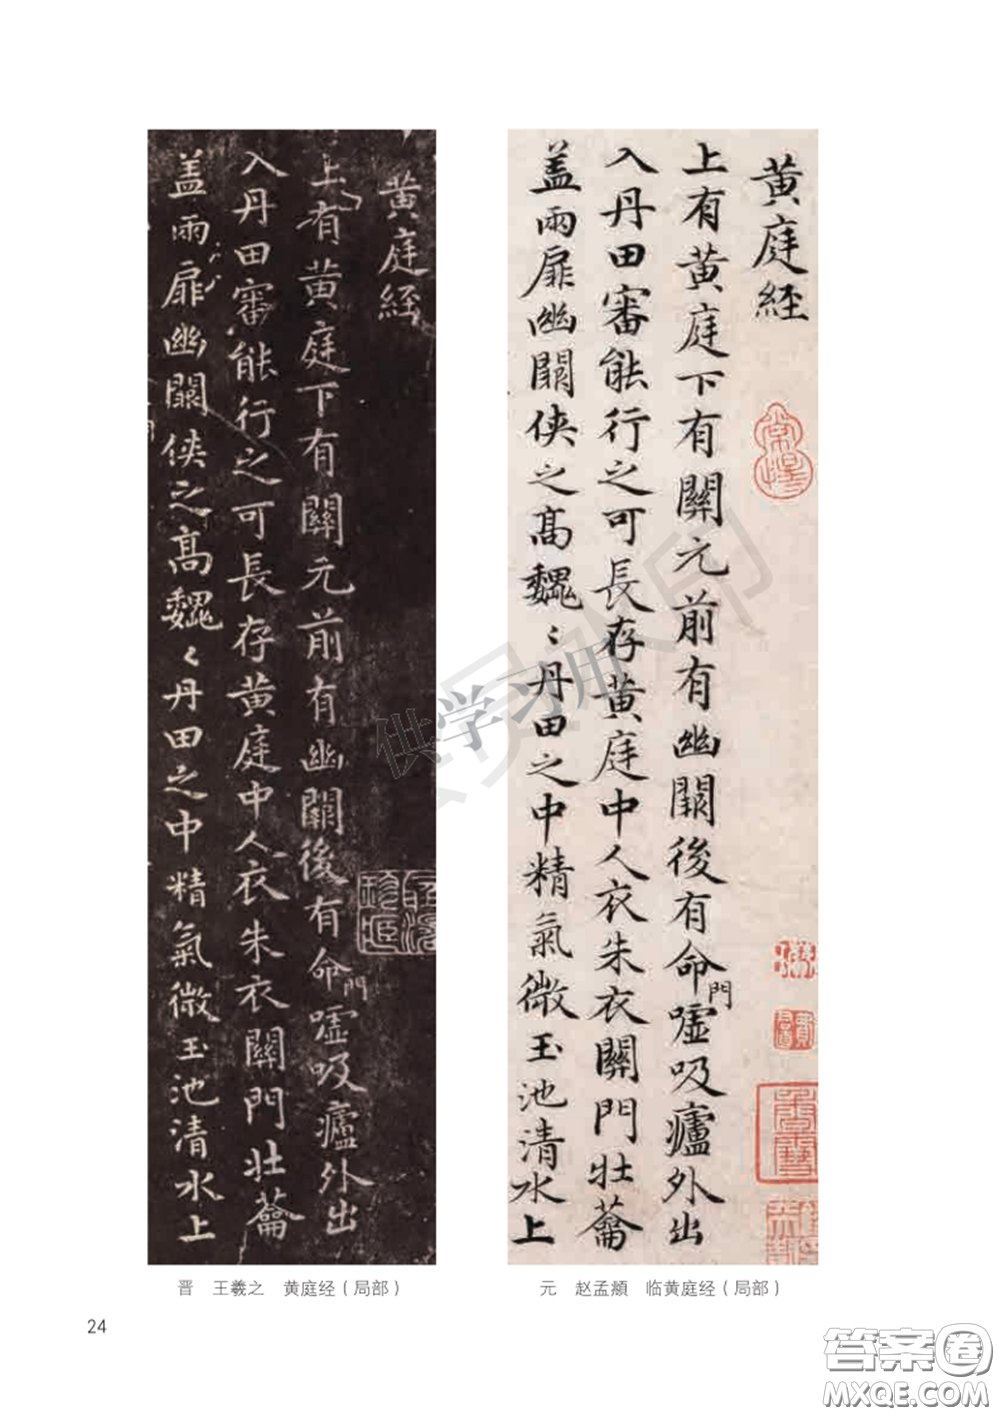 黄庭經
上有黄庭下有關元前有幽闕後有命門嘘吸廬外出
入丹田審能行之可長存黄庭中人衣朱衣關門壯蘥
盖兩扉幽闕俠之高魏〻丹田之中精氣微玉池清水上
黄庭經
上有黄庭下有關元前有幽闕後有命門嘘吸廬外出
入丹田審能行之可長存黄庭中人衣朱衣關門壯蘥
盖兩扉幽闕俠之高魏〻丹田之中精氣微玉池清水上
供学习用
晋 王羲之 黄庭经（局部）
元 赵孟頫 临黄庭经（局部）
24
答案圈
MXQE.COM